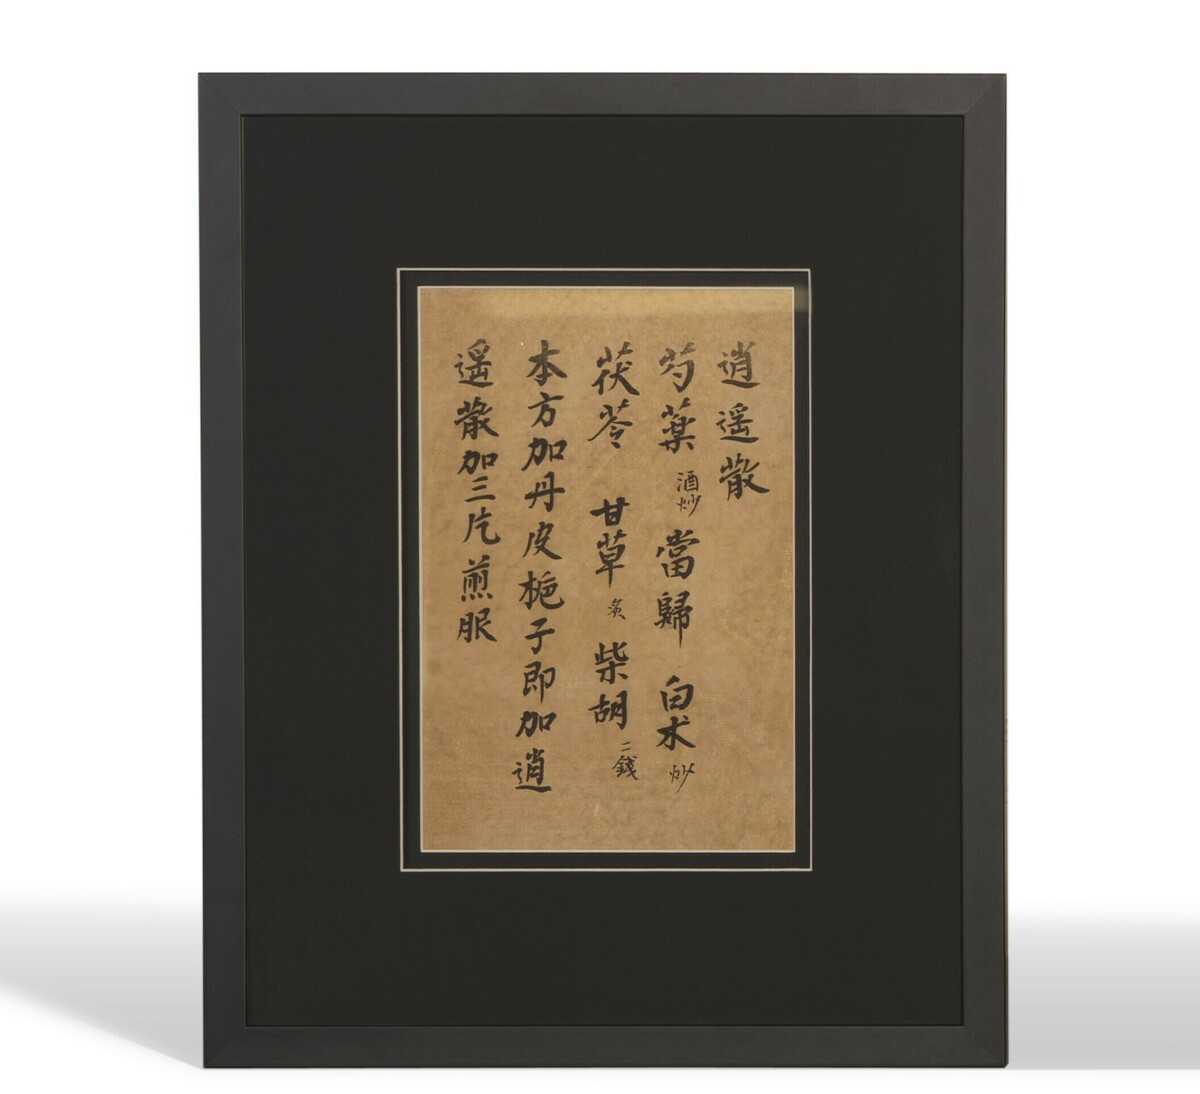 逍遥散
芍藥 酒炒 當歸 白术 炒
茯苓 甘草 炙 柴胡 二錢
本方加丹皮栀子即加逍
遥散加三片煎服